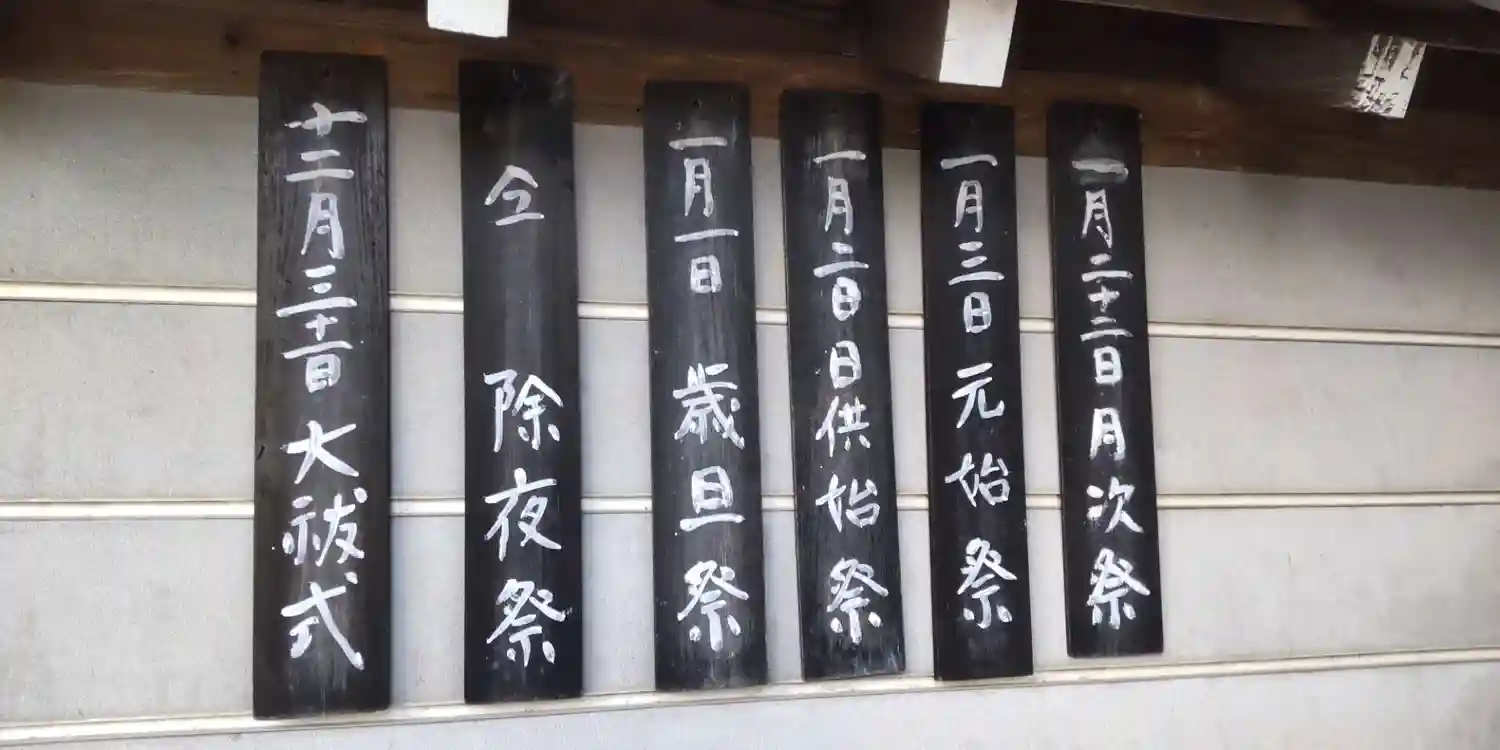 十二月三十一日 大祓式
仝 除夜祭
一月一日 歳旦祭
一月二日 日供始祭
一月三日 元始祭
一月二十二日 月次祭